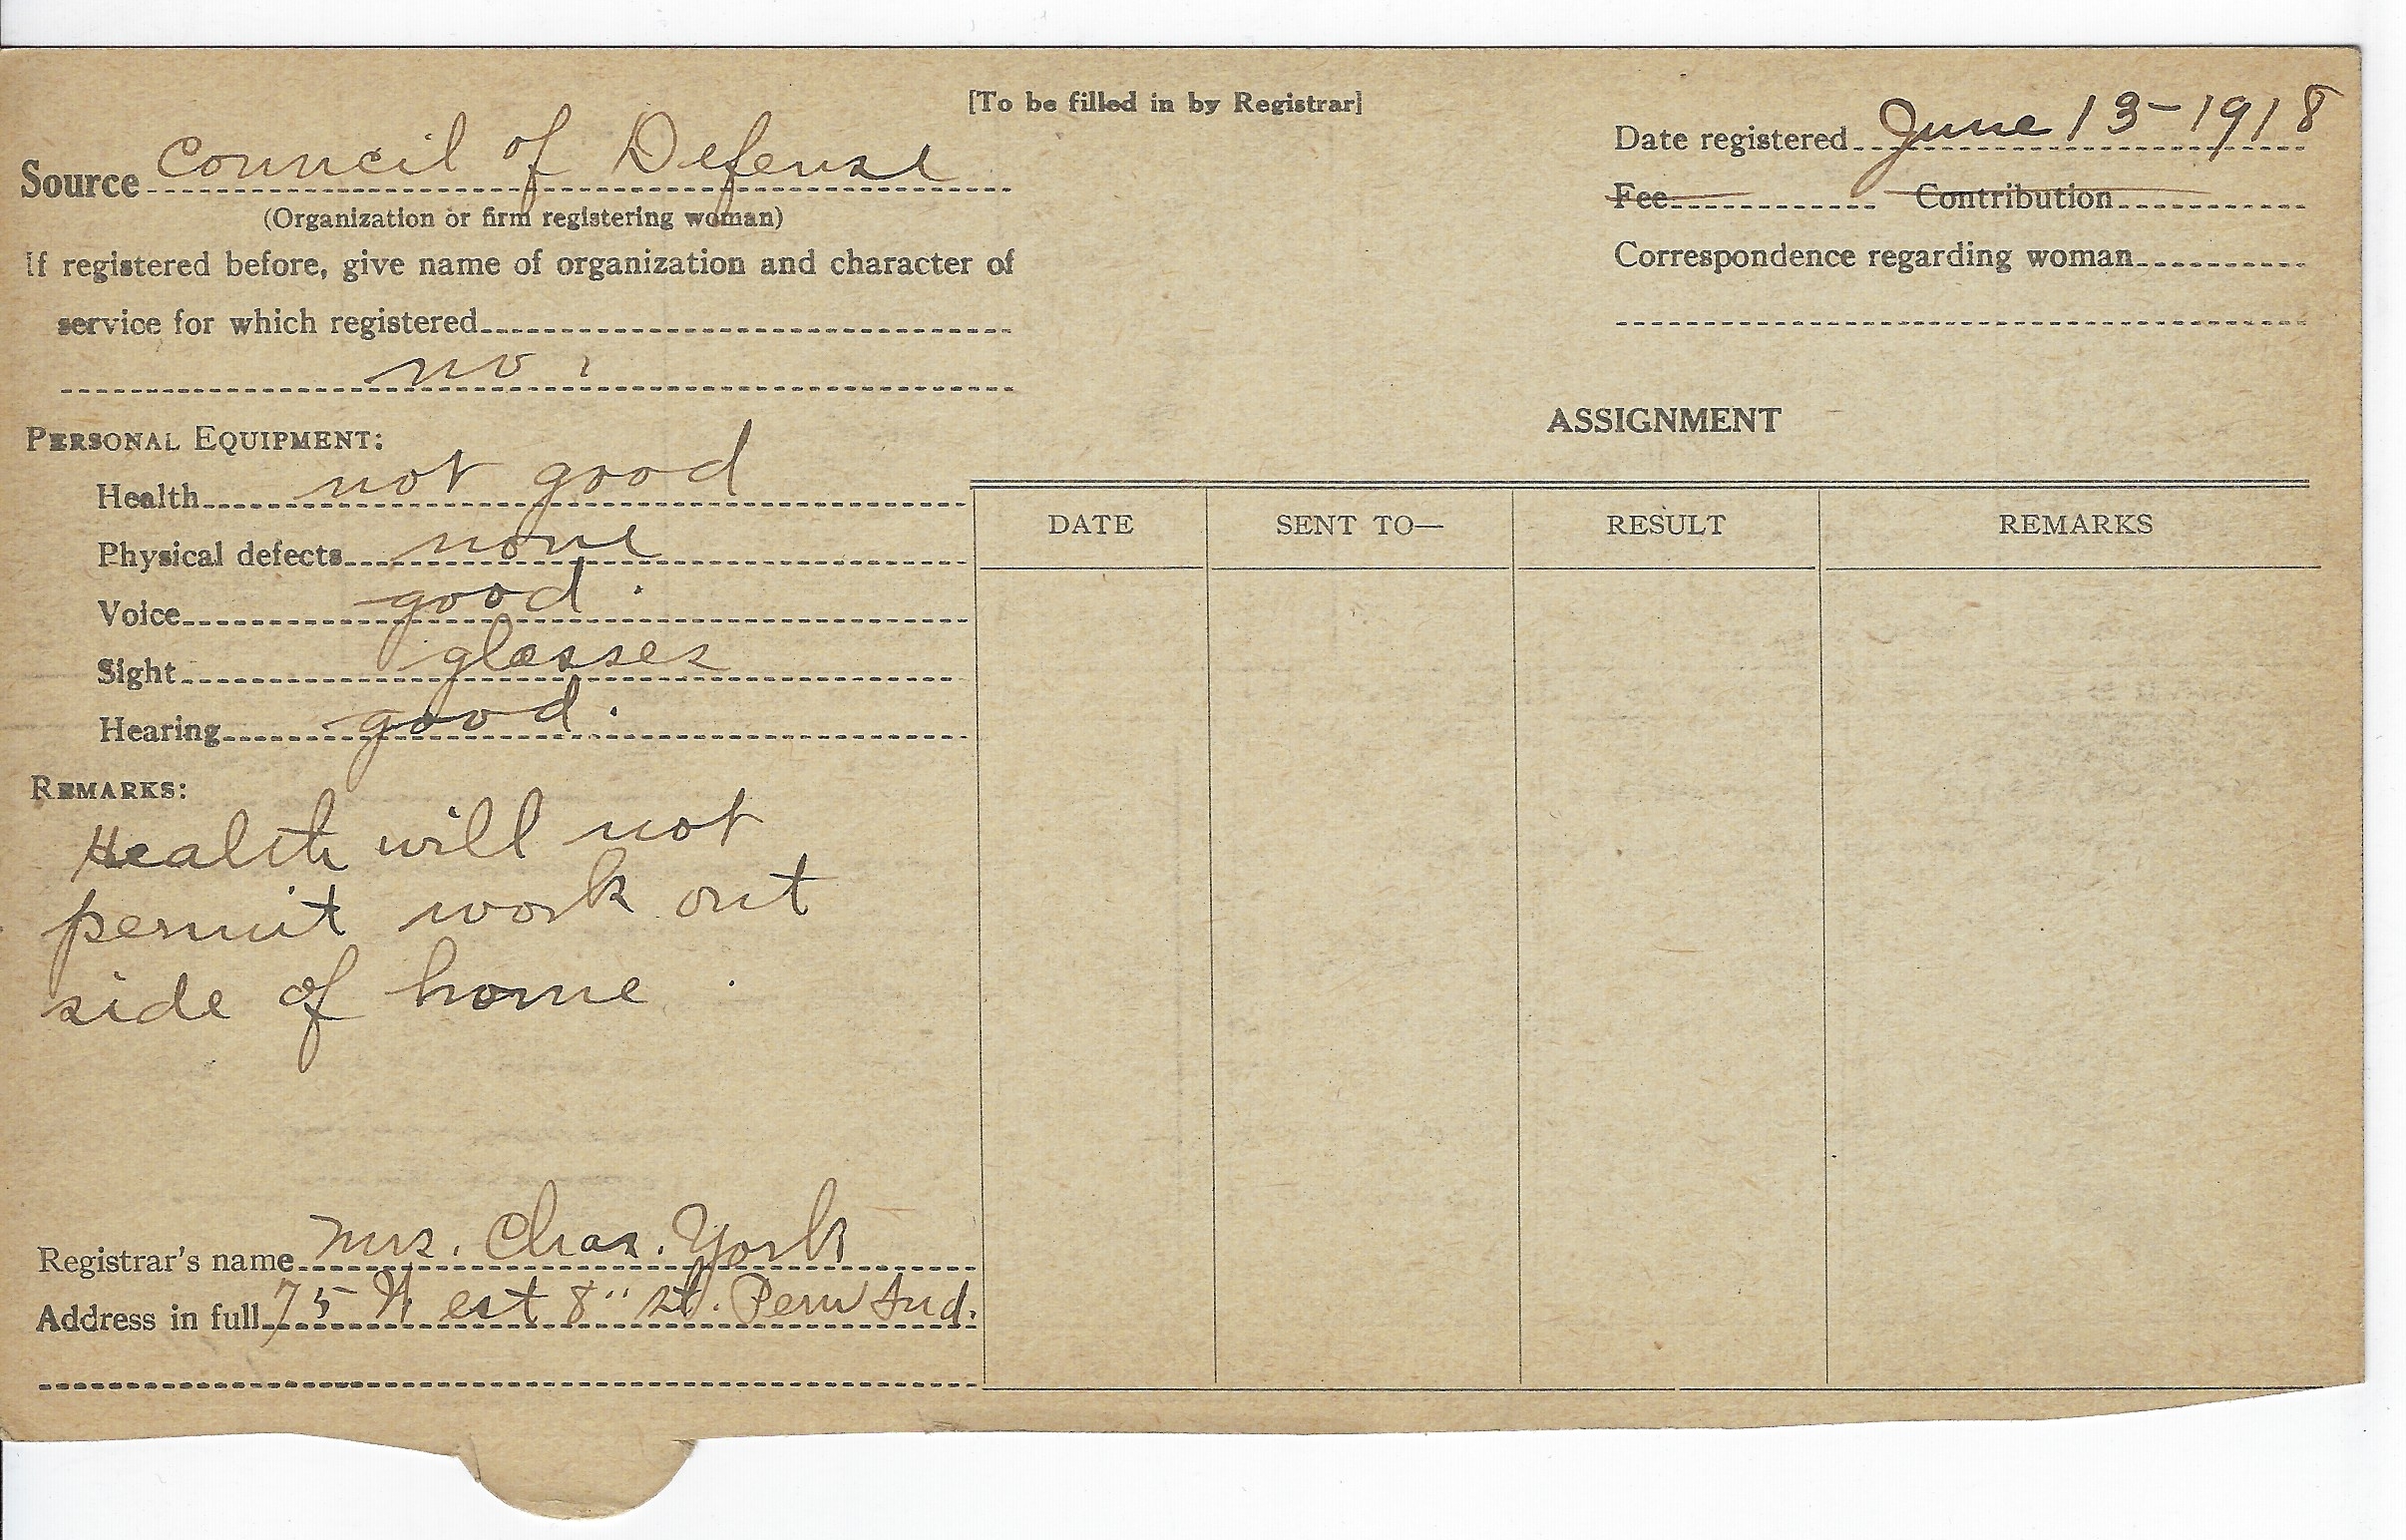 [To be filled in by Registrar]
Source Council of Defense
(Organization or firm registering woman)
If registered before, give name of organization and character of
service for which registered
no.
Date registered June 13-1918
Fee Contribution
Correspondence regarding woman
PERSONAL EQUIPMENT:
Health not good
Physical defects none
Voice good.
Sight glasses
Hearing good.
REMARKS:
Health will not
permit work out
side of home.
Registrar's name Mrs. Chas. York
Address in full 75 West 8" st. Peru Ind.
ASSIGNMENT
DATE SENT TO— RESULT REMARKS